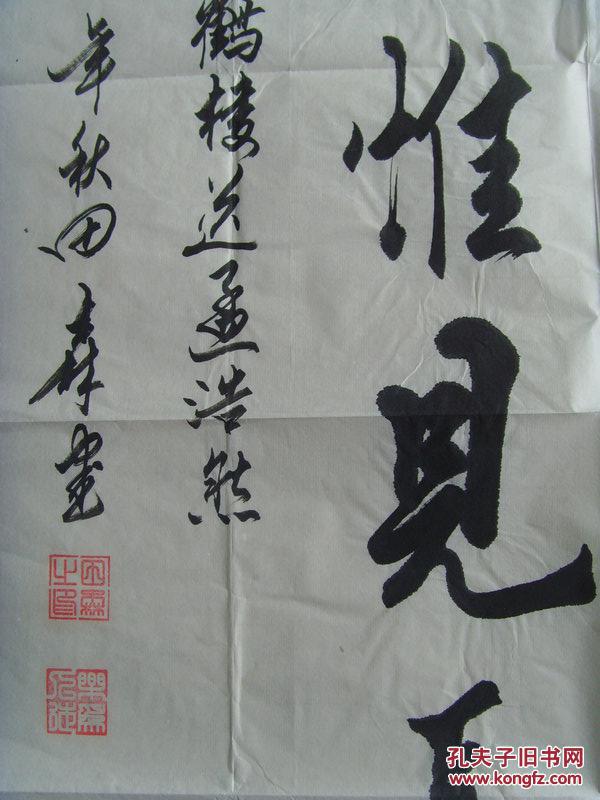 惟見
鶴樓送孟浩然
年秋田森書
田森之印
孔夫子旧书网
www.kongfz.com